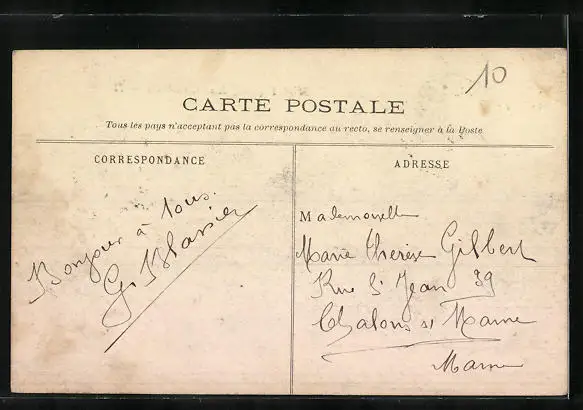 10
CARTE POSTALE
Tous les pays n'acceptant pas la correspondance au recto, se renseigner à la Poste
CORRESPONDANCE
ADRESSE
Bonjour à tous.
G Blavier
Mademoiselle
Marie Thérèse Gilbert
Rue St Jean 39
Chalons s/ Marne
Marne